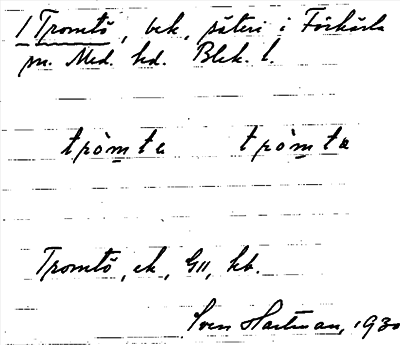 1 Tromtö, bek, säteri i Förkärla
sn. Med. hd. Blek. l.
tròmta tròmta
Tromtö, ek, GII, hb.
Sven Hartman, 1930